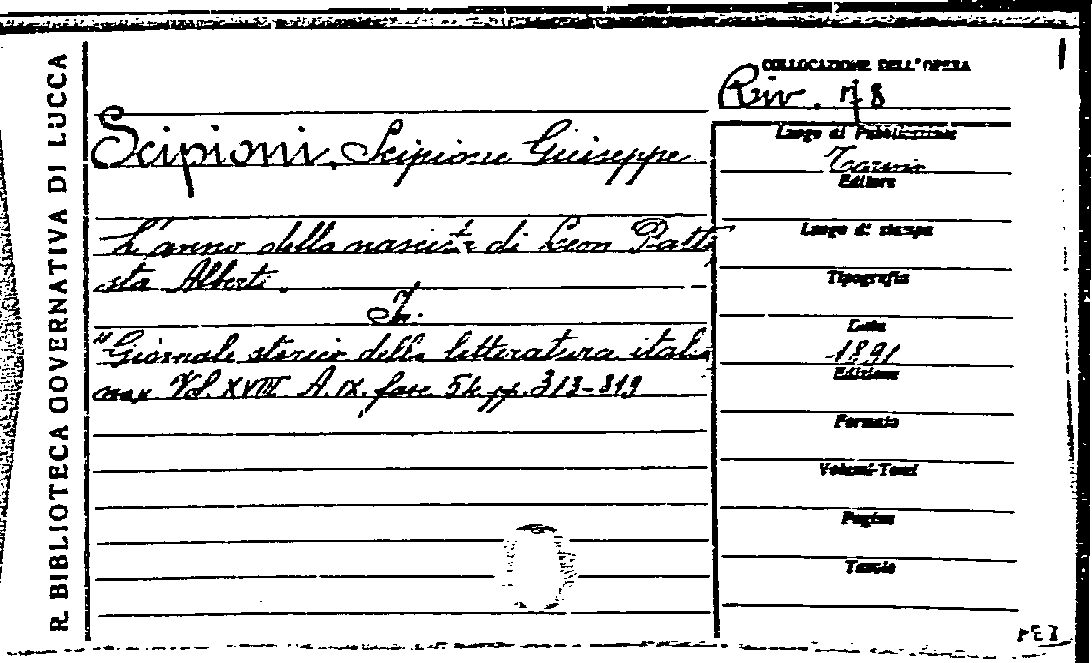 R. BIBLIOTECA GOVERNATIVA DI LUCCA
COLLOCAZIONE DELL'OPERA
Riv. 78
Scipioni, Scipione Giuseppe
L'anno della nascita di Leon Batti
sta Alberti.
In:
"Giornale storico della letteratura italia
na" Vol. XVIII A. IX. fasc. 54 pp. 313-319
Luogo di Pubblicazione
Torino
Editore
Luogo di stampa
Tipografia
Data
1891
Edizione
Formato
Volumi-Tomi
Pagine
Tavole